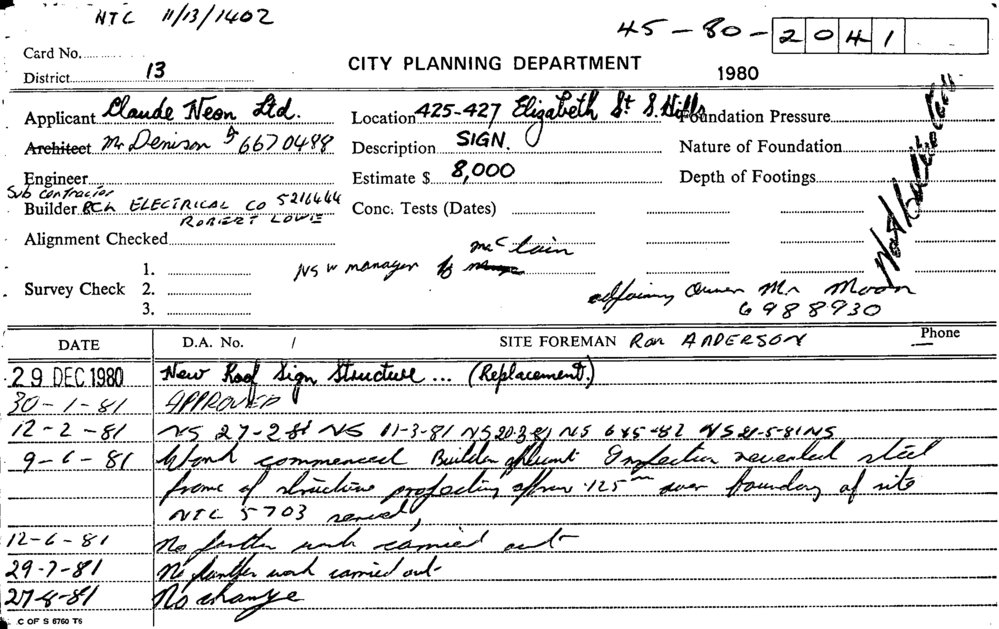 NTC 11/13/1402
45-80-2041
Card No.
District 13
CITY PLANNING DEPARTMENT
1980
Applicant Claude Neon Ltd.
Location 425-427 Elizabeth St S. Hills
Foundation Pressure
Architect Mr Denison 6670488
Description SIGN.
Nature of Foundation
Engineer
Estimate $ 8,000
Depth of Footings
Sub Contractor
Builder ELECTRICAL CO 5216444
ROBERT LOWIE
Conc. Tests (Dates)
Alignment Checked
NSW manager McClain
Survey Check 1.
2.
3.
adjoining Owner Mr Moon
6988930
DATE D.A. No. / SITE FOREMAN Ron ANDERSON Phone
29 DEC 1980 New Roof Sign Structure ... (Replacement.)
30-1-81 APPROVED
12-2-81 NS 27-2-81 NS 11-3-81 NS 20-3-81 NS NS 21-5-81 NS
9-6-81 Work commenced Builder Inspection revealed steel
frame of structure projecting 125mm over boundary of site
NTC 5703 served
12-6-81 No further work carried out
29-7-81 No further work carried out
27-8-81 No change
C OF S 6760 T6